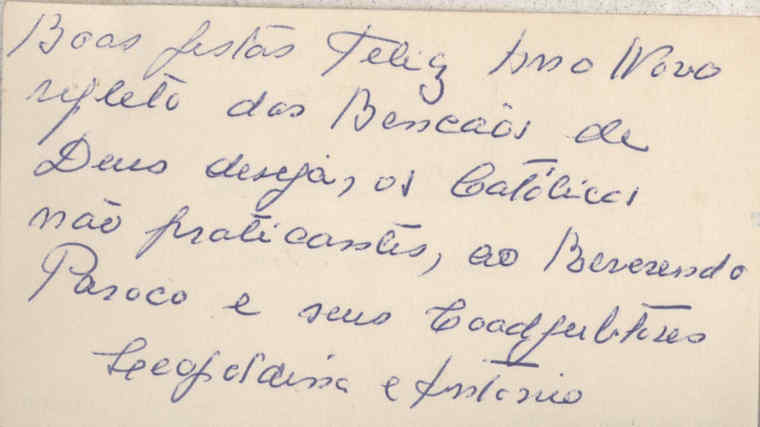 Boas festas Feliz Anno Novo
repleto das Bencãos de
Deus deseja, os Católicos
não praticantes, ao Reverendo
Paroco e seus Coadjubtores
Leopoldina e António